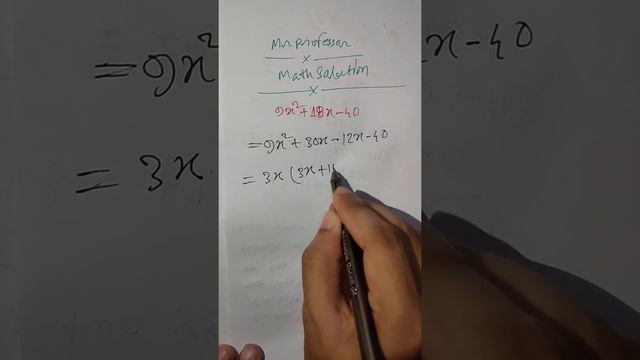 Mr Professor
Math Solution
9x²+18x-40
=9x²+30x-12x-40
= 3x (3x+1